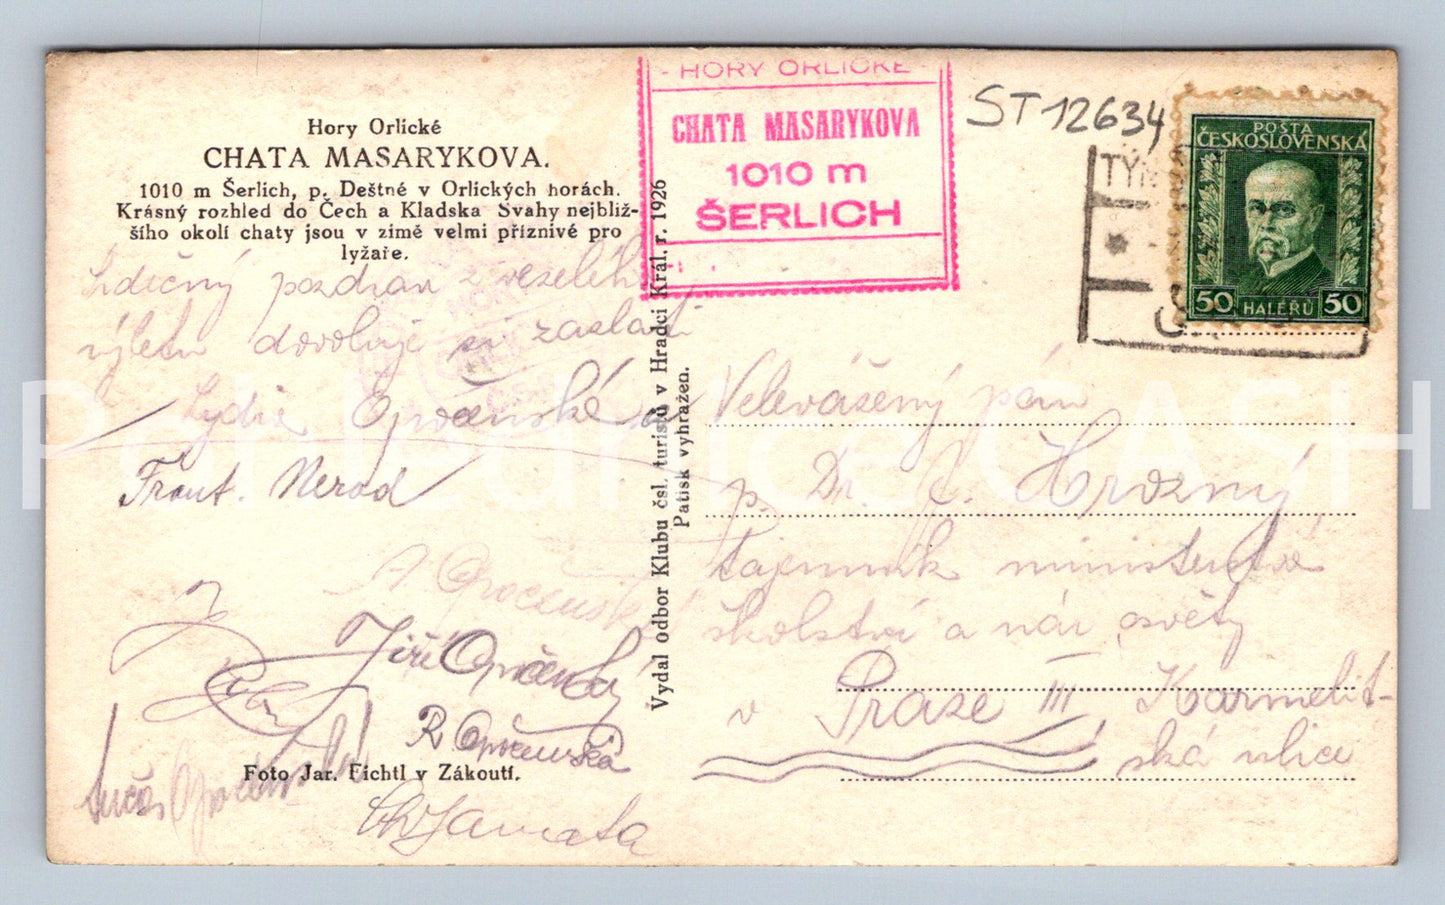 Hory Orlické
CHATA MASARYKOVA.
1010 m Šerlich, p. Deštné v Orlických horách.
Krásný rozhled do Čech a Kladska Svahy nejbliž-
šího okolí chaty jsou v zimě velmi příznivé pro
lyžaře.
Srdečný pozdrav z veselého
výletu dovoluje si zaslati
Lydie Opočenská a
Frant. Nerad
A Opočenský
Jiří Opočenský
R. Opočenská
Opočenský
Foto Jar. Fichtl v Zákoutí.
Vydal odbor Klubu čsl. turistů v Hradci Král. r. 1926
Patisk vyhražen.
- HORY ORLICKÉ -
CHATA MASARYKOVA
1010 m
ŠERLICH
ST12634
TÝN
POŠTA
ČESKOSLOVENSKÁ
50 HALÉŘŮ 50
Velevážený pán
p. Dr. Hrozný
tajemník ministerstva
školství a nár. osvěty
v Praze III, Karmelit-
ská ulice
Pohlednice CASH